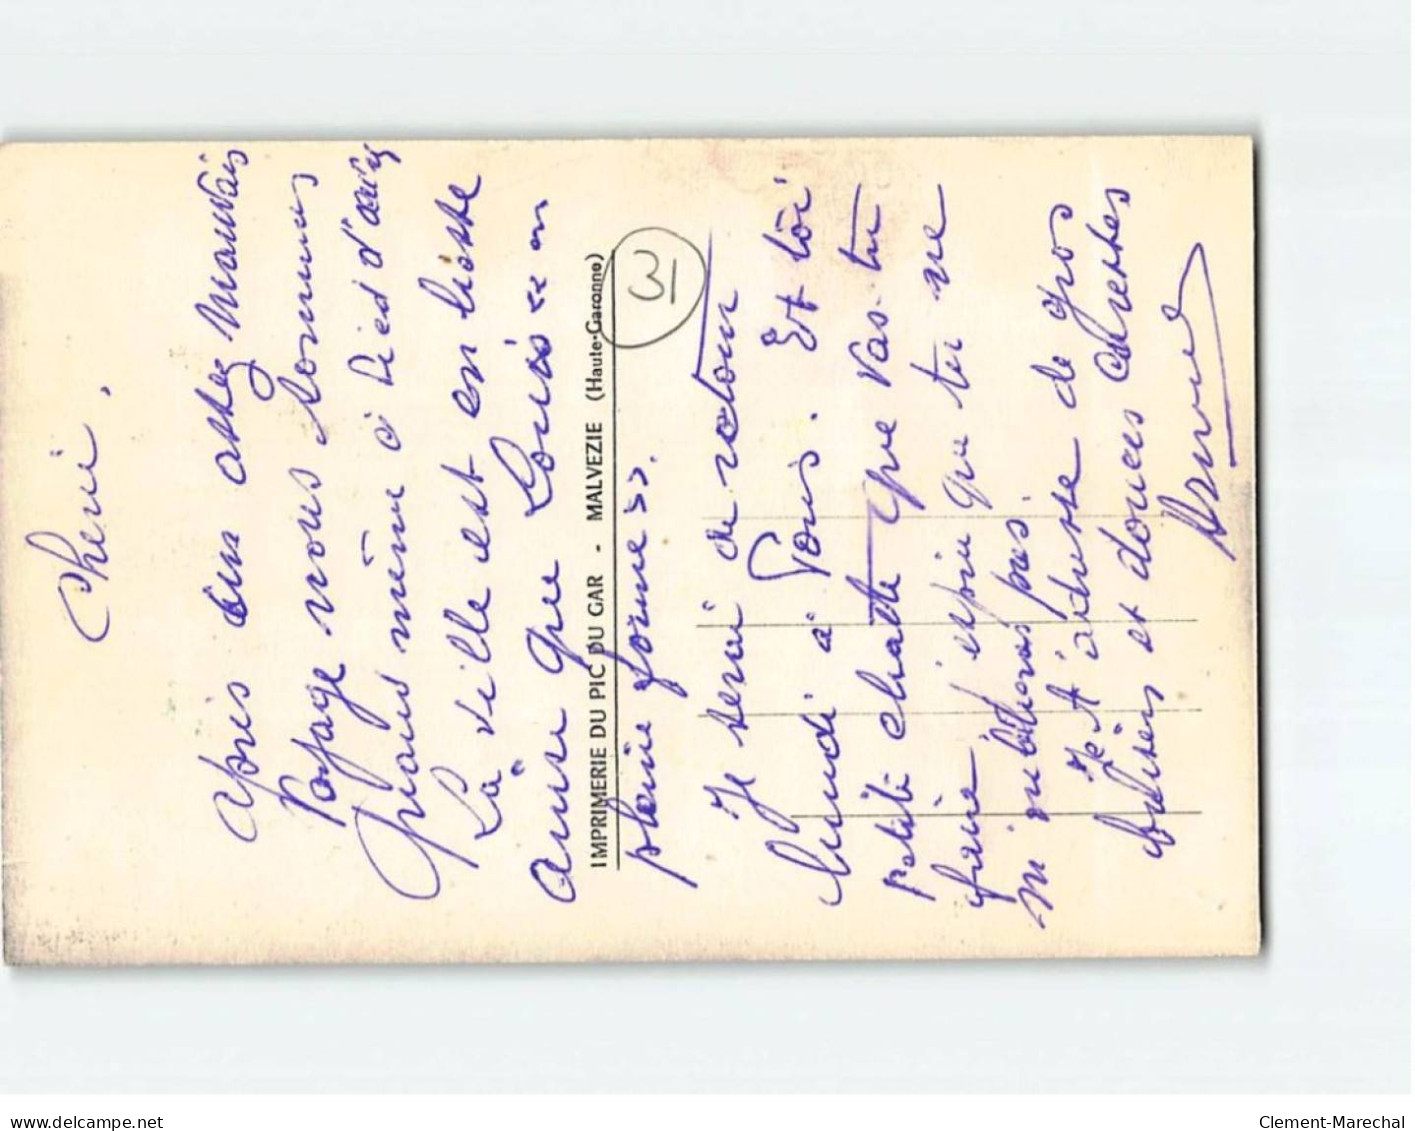 Cheri,
après un assez mauvais
voyage nous sommes
quand même à Pied d'
La ville est en liesse
ainsi que Louis « en
IMPRIMERIE DU PIC DU GAR - MALVEZIE (Haute-Garonne)
3
pleine forme ».
Je serai de retour
lundi à Paris. Et toi
petite chatte que vas-tu
faire j'espère que tu ne
m'oublieras pas.
Je t'adresse de gros
baisers et douces caresses
www.delcampe.net
Clement-Marechal